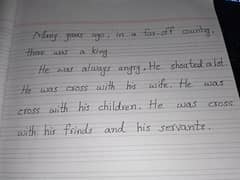 Many years ago, in a far-off country,
there was a king.
He was always angry. He shouted a lot.
He was cross with his wife. He was
cross with his children. He was cross
with his frinds and his servants.